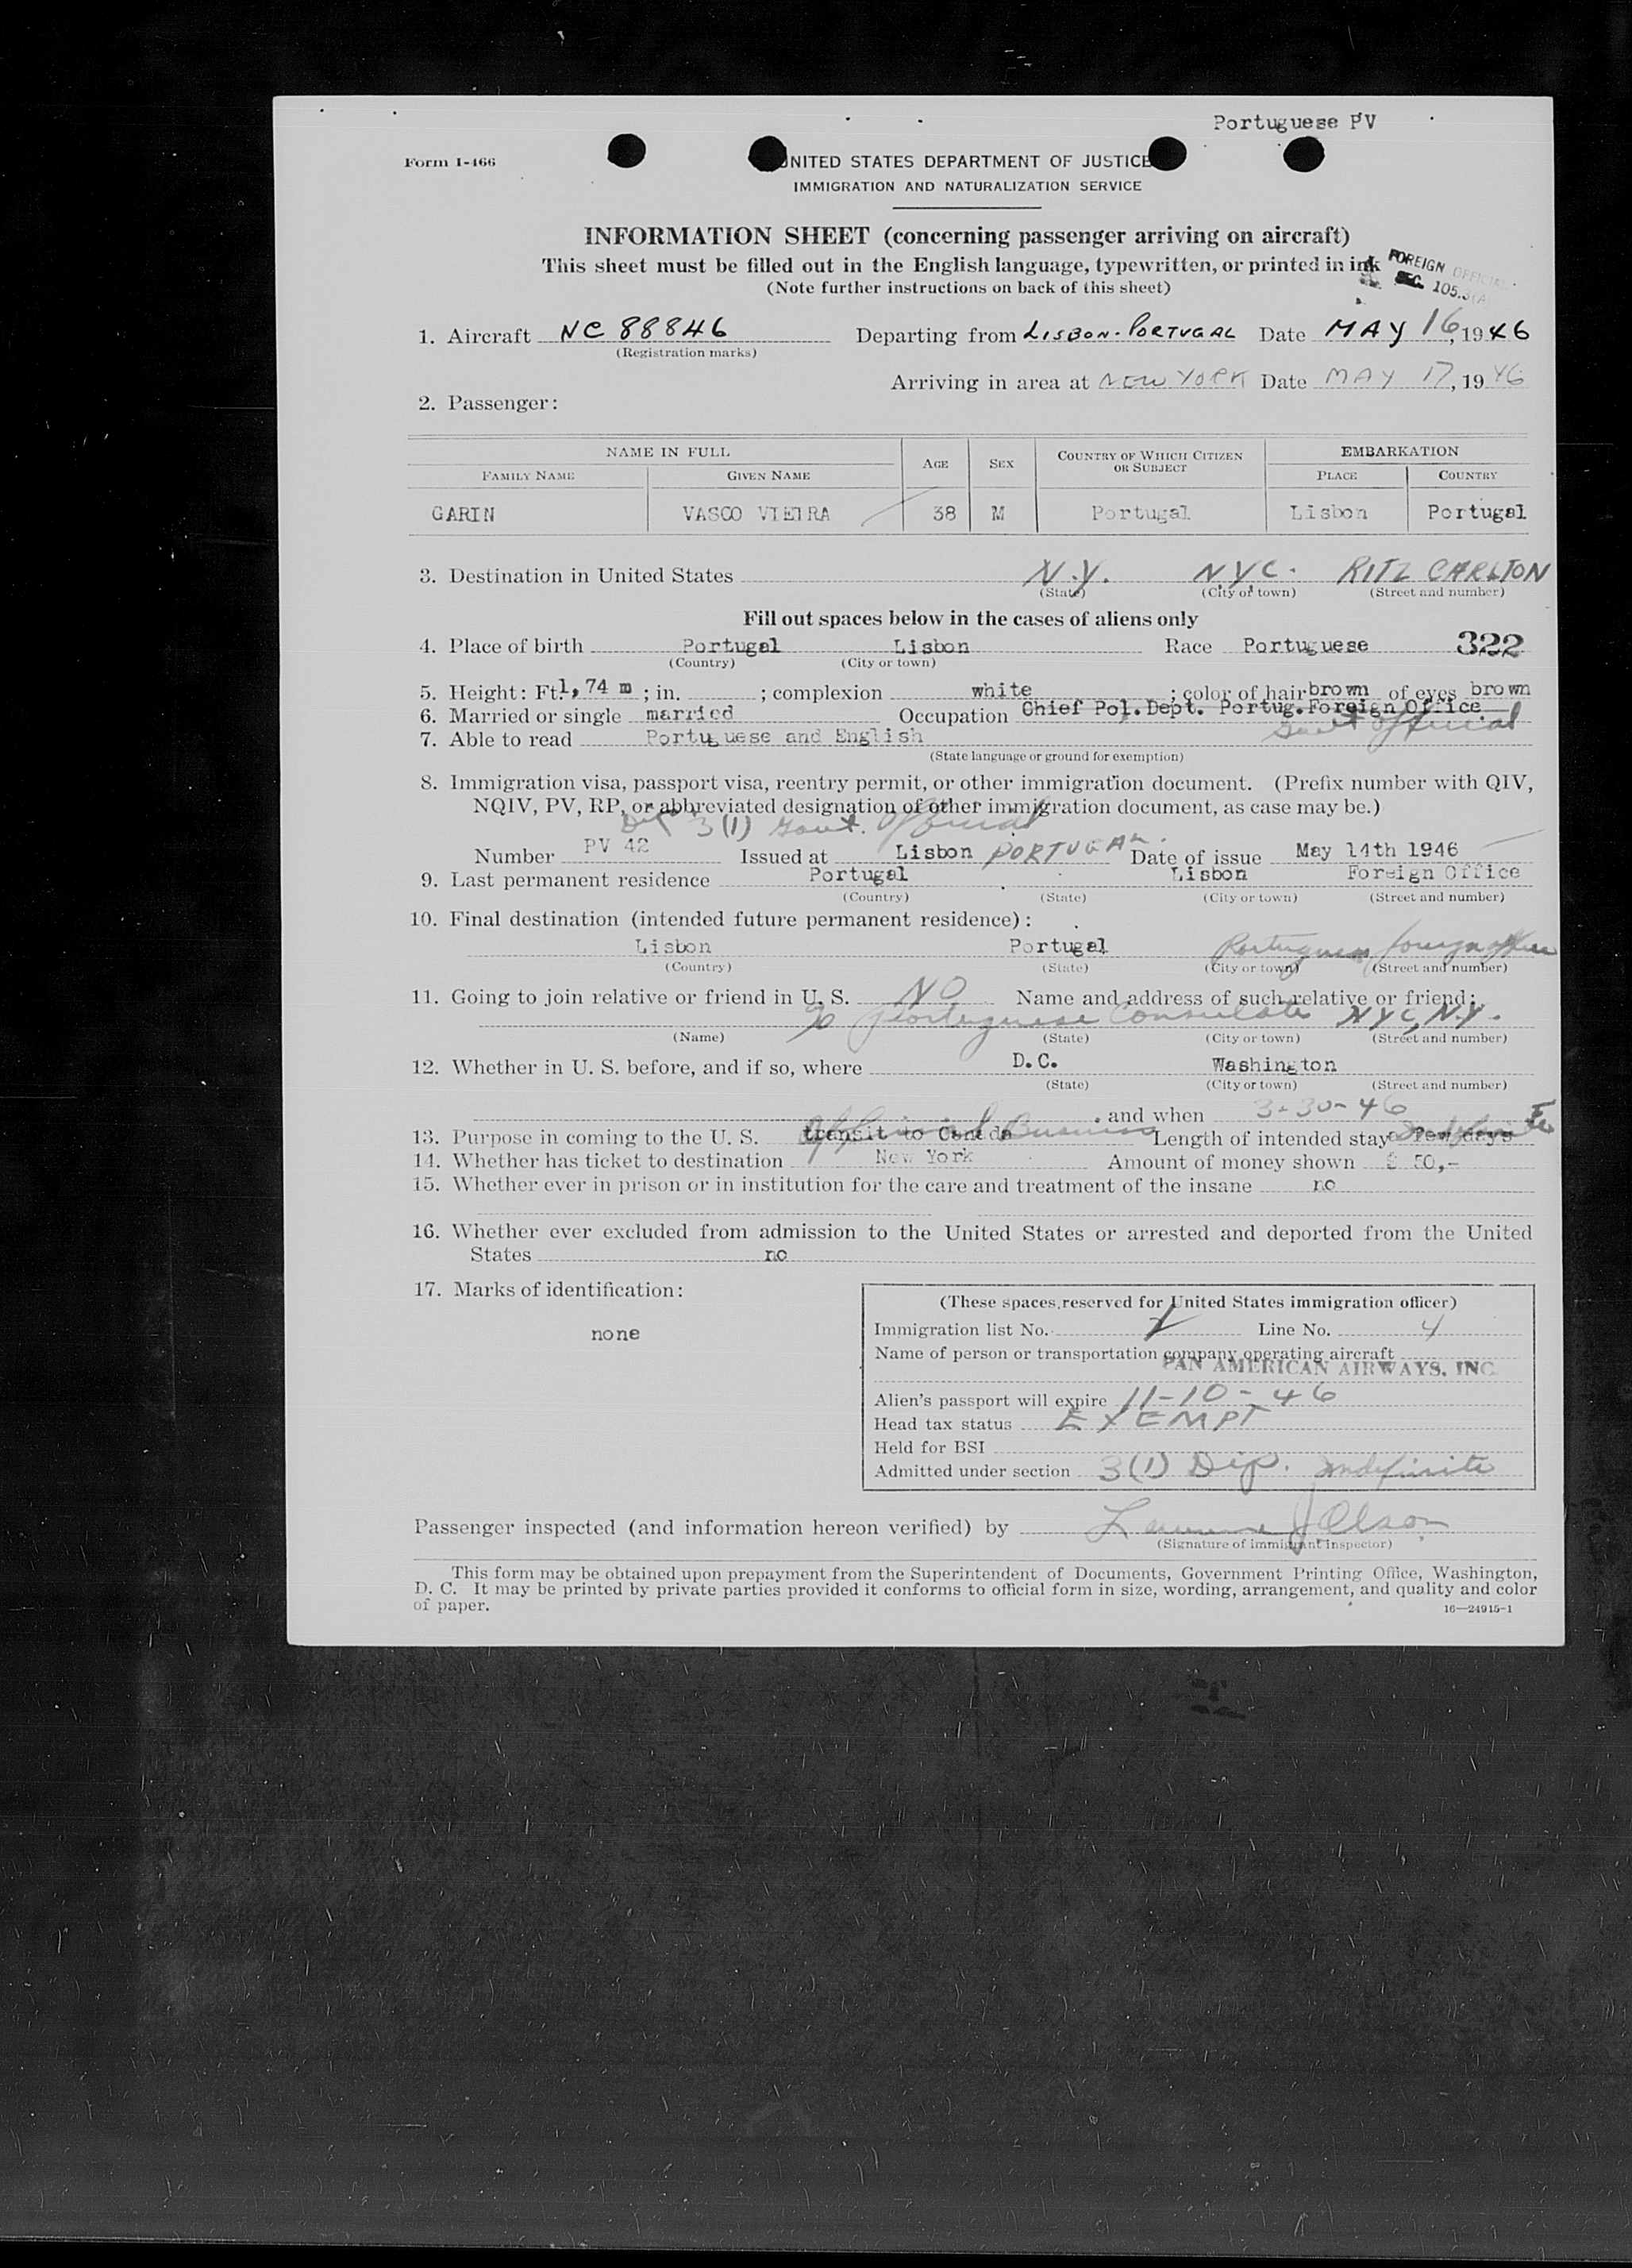 Portuguese PV
Form I-466
UNITED STATES DEPARTMENT OF JUSTICE
IMMIGRATION AND NATURALIZATION SERVICE
INFORMATION SHEET (concerning passenger arriving on aircraft)
This sheet must be filled out in the English language, typewritten, or printed in ink
FOREIGN OFFICIAL
SEC. 105.3(A)
(Note further instructions on back of this sheet)
1. Aircraft NC 88846 Departing from LISBON-PORTUGAL Date MAY 16, 1946
(Registration marks)
Arriving in area at NEW YORK Date MAY 17, 1946
2. Passenger:
NAME IN FULL AGE SEX COUNTRY OF WHICH CITIZEN OR SUBJECT EMBARKATION
FAMILY NAME GIVEN NAME PLACE COUNTRY
GARIN VASCO VIEIRA 38 M Portugal Lisbon Portugal
3. Destination in United States N.Y. N.Y.C. RITZ CARLTON
(State) (City or town) (Street and number)
Fill out spaces below in the cases of aliens only
4. Place of birth Portugal Lisbon Race Portuguese 322
(Country) (City or town)
5. Height: Ft. 1,74 m ; in. ; complexion white ; color of hair brown of eyes brown
6. Married or single married Occupation Chief Pol.Dept. Portug.Foreign Office
Govt Official
7. Able to read Portuguese and English
(State language or ground for exemption)
8. Immigration visa, passport visa, reentry permit, or other immigration document. (Prefix number with QIV,
NQIV, PV, RP, or abbreviated designation of other immigration document, as case may be.)
Dip 3(1) Govt. Official
Number PV 42 Issued at Lisbon PORTUGAL. Date of issue May 14th 1946
9. Last permanent residence Portugal Lisbon Foreign Office
(Country) (State) (City or town) (Street and number)
10. Final destination (intended future permanent residence):
Lisbon Portugal Portuguese foreign office
(Country) (State) (City or town) (Street and number)
11. Going to join relative or friend in U. S. NO Name and address of such relative or friend:
% Portuguese Consulate NYC, N.Y.
(Name) (State) (City or town) (Street and number)
12. Whether in U. S. before, and if so, where D.C. Washington
(State) (City or town) (Street and number)
, and when 3-30-46
13. Purpose in coming to the U. S. transit to Canada Official Business Length of intended stay a few days Indefinite
14. Whether has ticket to destination New York Amount of money shown $ 50,-
15. Whether ever in prison or in institution for the care and treatment of the insane no
16. Whether ever excluded from admission to the United States or arrested and deported from the United
States no
17. Marks of identification:
none
(These spaces reserved for United States immigration officer)
Immigration list No. Line No. 4
Name of person or transportation company operating aircraft
PAN AMERICAN AIRWAYS, INC.
Alien's passport will expire 11-10-46
Head tax status EXEMPT
Held for BSI
Admitted under section 3(1) Dip. indefinite
Passenger inspected (and information hereon verified) by J. Olson
(Signature of immigrant inspector)
This form may be obtained upon prepayment from the Superintendent of Documents, Government Printing Office, Washington,
D. C. It may be printed by private parties provided it conforms to official form in size, wording, arrangement, and quality and color
of paper.
16—24915-1